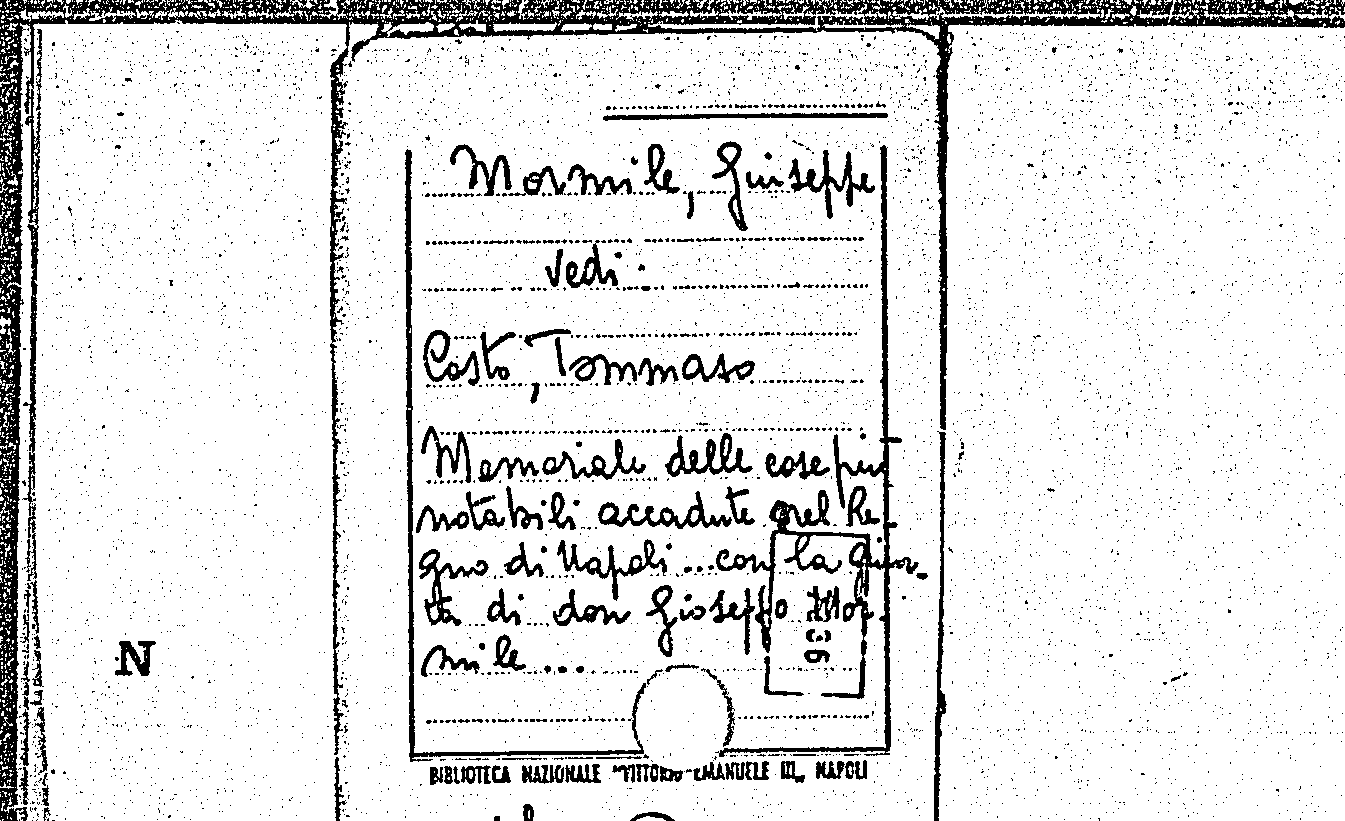 Mormile, Giuseppe
vedi:
Costo, Tommaso
Memoriale delle cose piu
notabili accadute nel Re-
gno di Napoli ... con la giun-
ta di don Gioseffo Mor-
mile ...
N
BIBLIOTECA NAZIONALE "VITTORIO EMANUELE III" NAPOLI